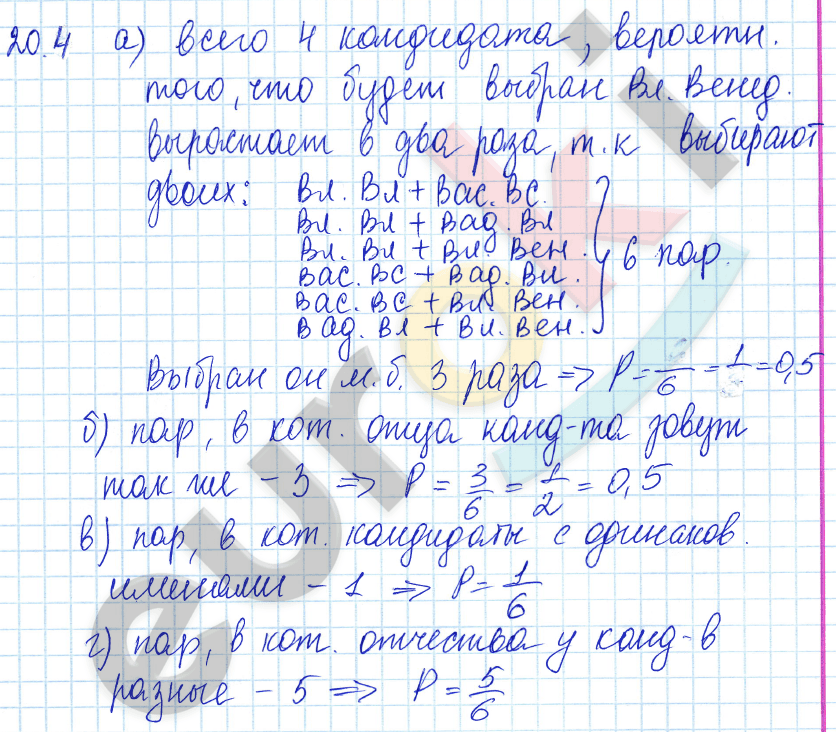 20.4 а) всего 4 кандидата, вероятн.
того, что будет выбран Вл. Венед.
вырастает в два раза, т.к выбирают
двоих: Вл. Вл + Вас. Вс.
Вл. Вл + Вад. Вл
Вл. Вл + Вл. Вен.
Вас. Вс + Вад. Вл.
Вас. Вс + Вл. Вен.
Вад. Вл + Вл. Вен.
6 пар.
Выбран он м.б. 3 раза => P = /6 = 1/ = 0,5
б) пар, в кот. отца канд-та зовут
так же - 3 => P = 3/6 = 1/2 = 0,5
в) пар, в кот. кандидаты с одинаков.
именами - 1 => P = 1/6
г) пар, в кот. отчества у канд-в
разные - 5 => P = 5/6
euroki